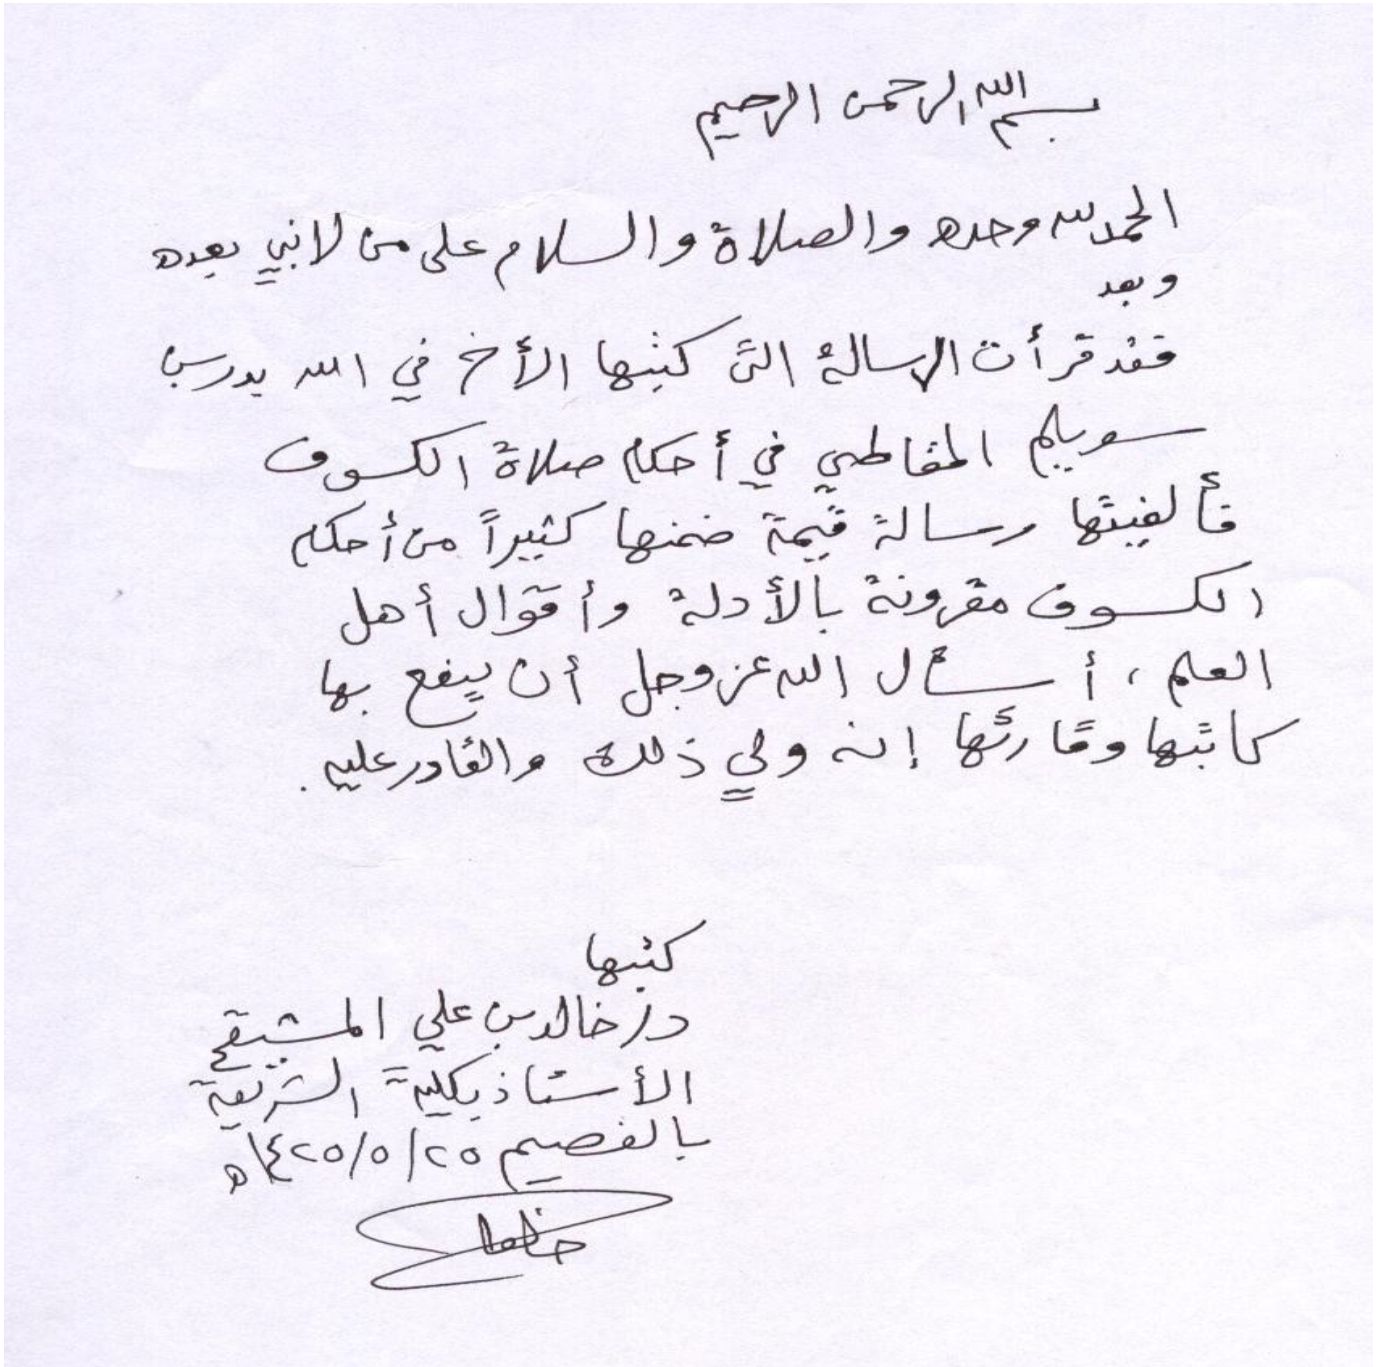 بسم الله الرحمن الرحيم
الحمد لله وحده والصلاة والسلام على من لا نبي بعده
وبعد
فقد قرأت الرسالة التي كتبها الأخ في الله بدر بن
سويلم المقاطي في أحكام صلاة الكسوف
فألفيتها رسالة قيمة ضمنها كثيراً من أحكام
الكسوف مقرونة بالأدلة وأقوال أهل
العلم، أسأل الله عز وجل أن ينفع بها
كاتبها وقارئها إنه ولي ذلك والقادر عليه.
كتبها
د/ خالد بن علي المشيقح
الأستاذ بكلية الشريعة
بالقصيم ٢٥/٥/١٤٢٥ه